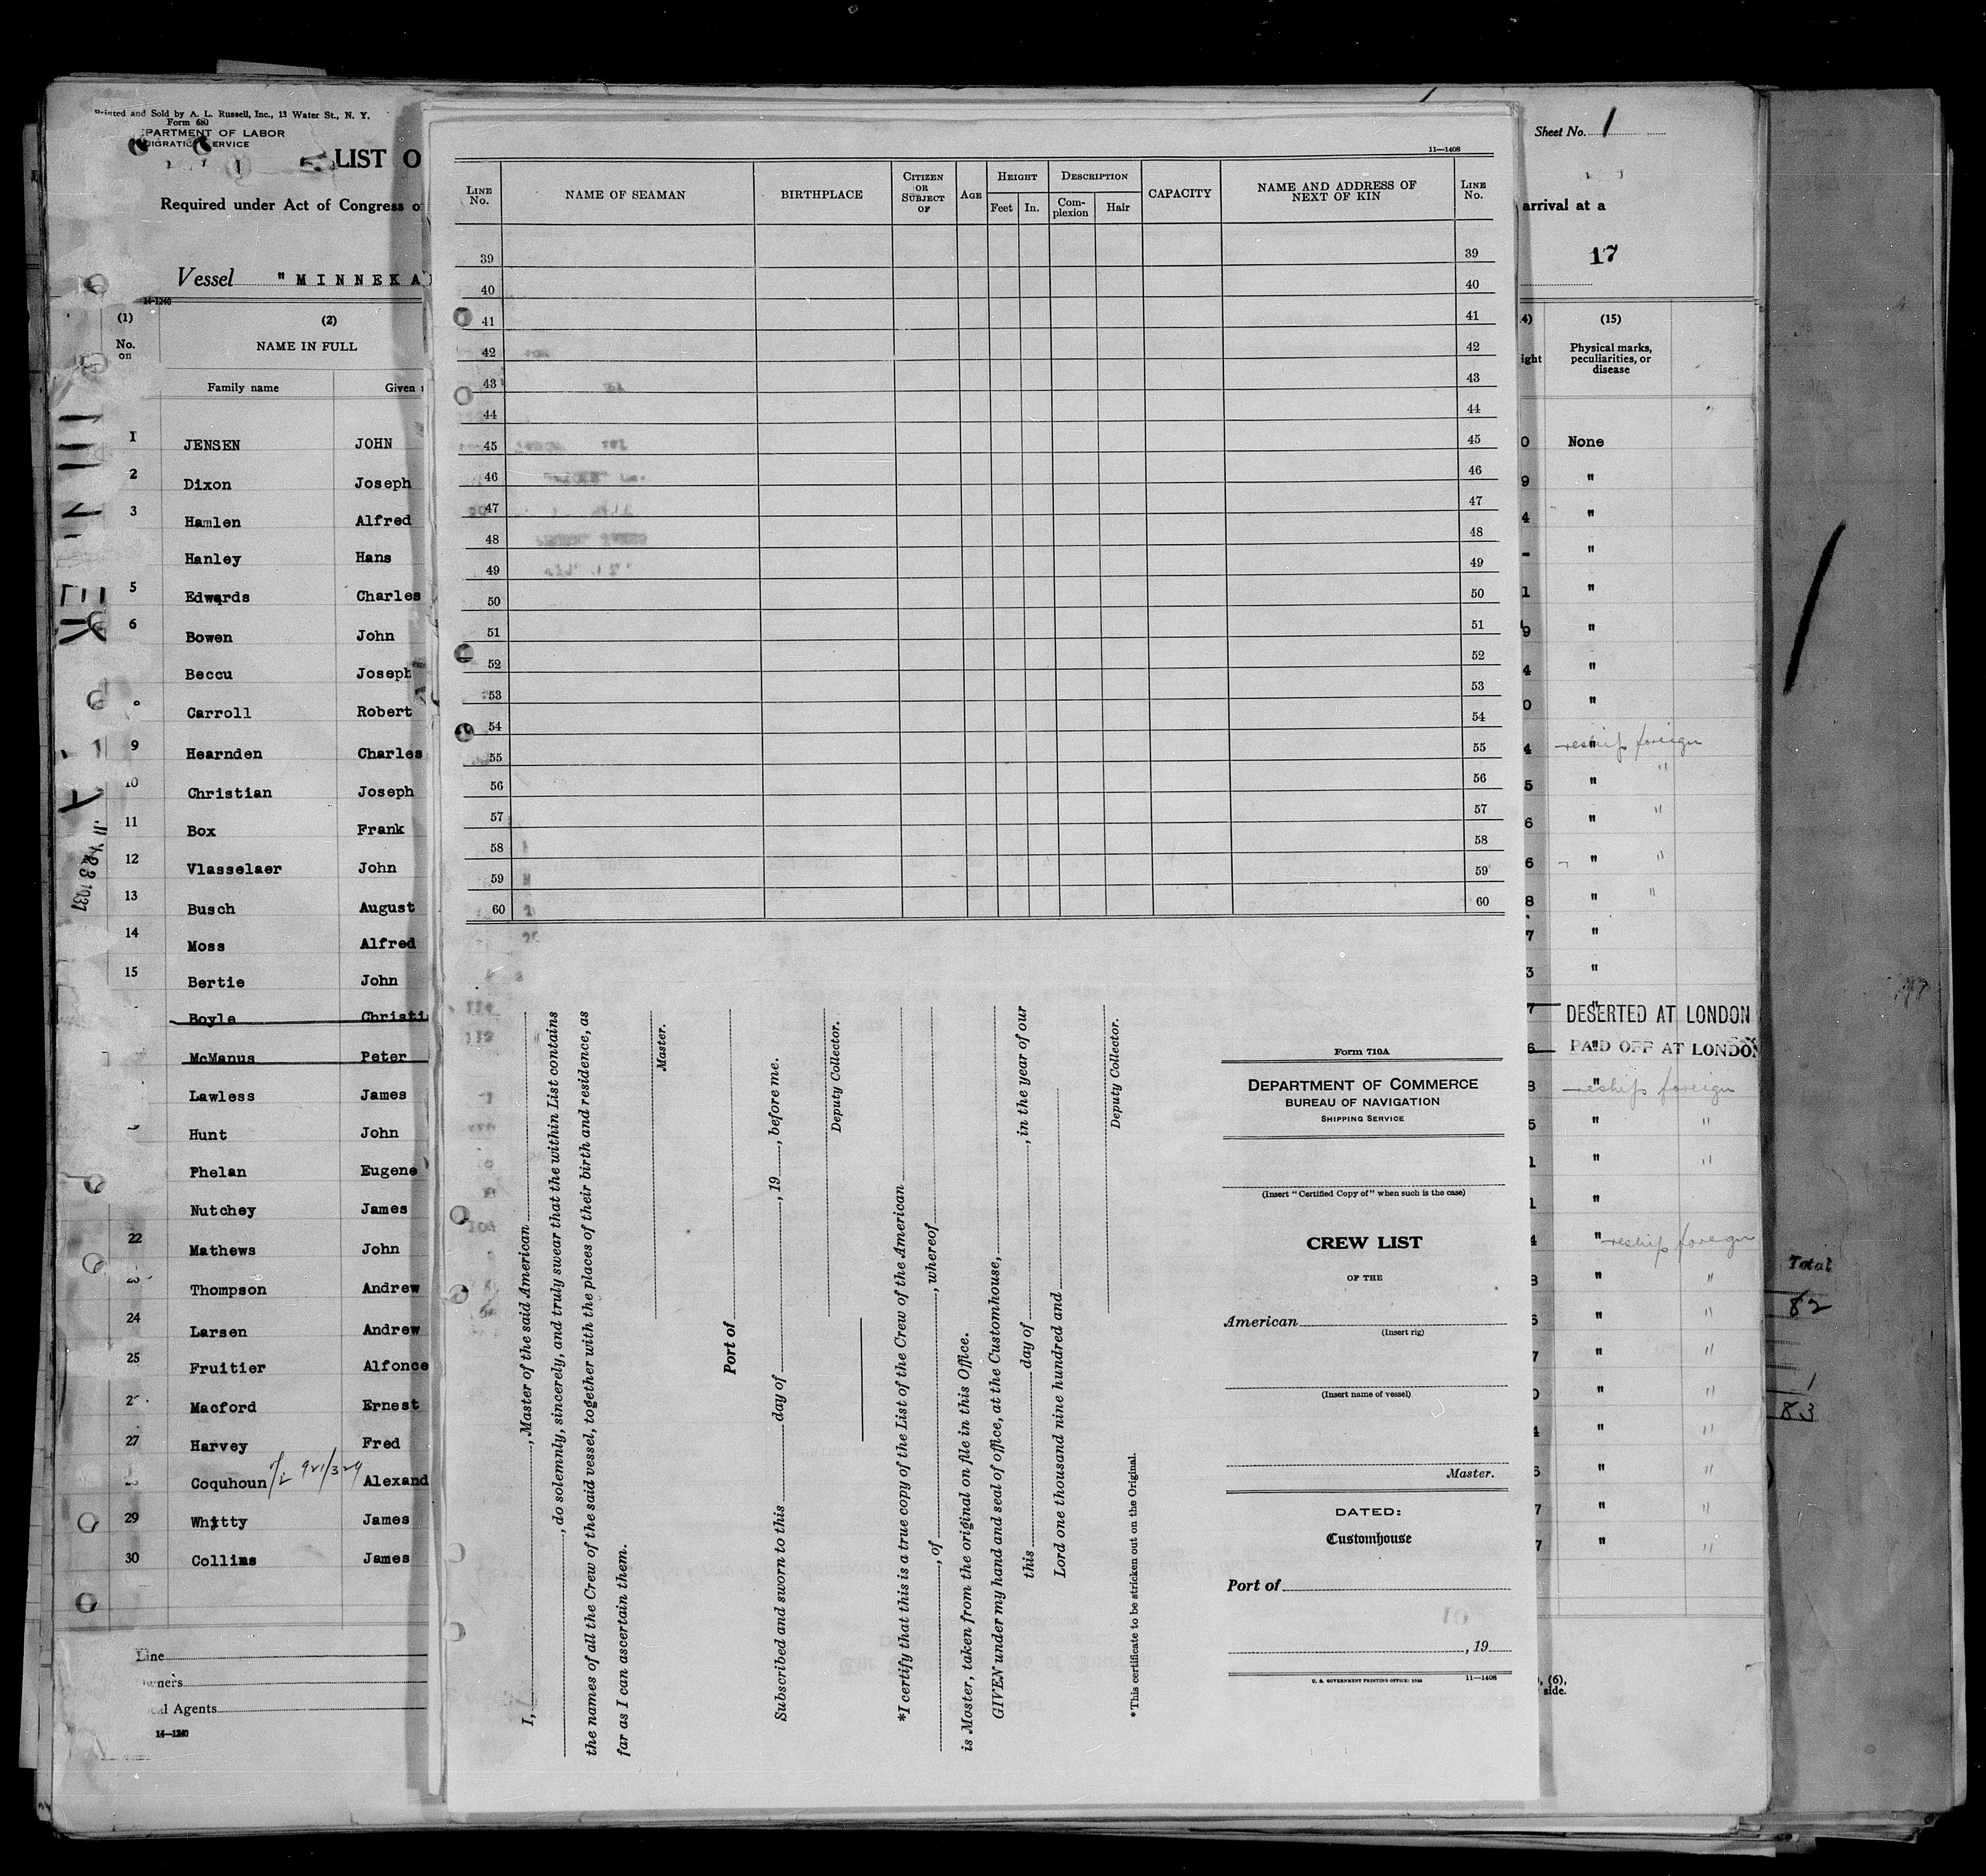 Printed and Sold by A. L. Russell, Inc., 13 Water St., N. Y.
Form 680
PARTMENT OF LABOR
MIGRATION SERVICE
LIST O
Required under Act of Congress o
Vessel "MINNEKA
14-1240
(1)
No.
on
(2)
NAME IN FULL
Family name
Given
1 JENSEN JOHN
2 Dixon Joseph
3 Hamlen Alfred
Hanley Hans
5 Edwards Charles
6 Bowen John
Beccu Joseph
Carroll Robert
9 Hearnden Charles
10 Christian Joseph
11 Box Frank
12 Vlasselaer John
13 Busch August
14 Moss Alfred
15 Bertie John
Boyle Christi
McManus Peter
Lawless James
Hunt John
Phelan Eugene
Nutchey James
22 Mathews John
Thompson Andrew
24 Larsen Andrew
25 Fruitier Alfonce
Macford Ernest
27 Harvey Fred
Coquhoun 921/324 Alexand
29 Whitty James
30 Collins James
Line
wners
cal Agents
14-1240
11—1408
LINE No.
NAME OF SEAMAN
BIRTHPLACE
CITIZEN OR SUBJECT OF
AGE
HEIGHT
Feet In.
DESCRIPTION
Complexion Hair
CAPACITY
NAME AND ADDRESS OF NEXT OF KIN
LINE No.
39 39
40 40
41 41
42 42
43 43
44 44
45 45
46 46
47 47
48 48
49 49
50 50
51 51
52 52
53 53
54 54
55 55
56 56
57 57
58 58
59 59
60 60
I, , Master of the said American
, do solemnly, sincerely, and truly swear that the within List contains
the names of all the Crew of the said vessel, together with the places of their birth and residence, as
far as I can ascertain them.
Master.
Port of
Subscribed and sworn to this day of , 19 , before me.
Deputy Collector.
*I certify that this is a true copy of the List of the Crew of the American
, of , whereof
is Moster, taken from the original on file in this Office.
GIVEN under my hand and seal of office, at the Customhouse,
this day of , in the year of our
Lord one thousand nine hundred and
Deputy Collector.
*This certificate to be stricken out on the Original.
Form 710A
DEPARTMENT OF COMMERCE
BUREAU OF NAVIGATION
SHIPPING SERVICE
(Insert "Certified Copy of" when such is the case)
CREW LIST
OF THE
American
(Insert rig)
(Insert name of vessel)
Master.
DATED:
Customhouse
Port of
, 19
U. S. GOVERNMENT PRINTING OFFICE: 1930 11—1408
Sheet No. 1
arrival at a
17
4)
ight
(15)
Physical marks, peculiarities, or disease
0 None
9 "
4 "
- "
1 "
9 "
4 "
0 "
4 " reship foreign
5 " "
6 " "
6 " "
8 " "
7 "
3 "
7 " DESERTED AT LONDON
6 " PAID OFF AT LONDON
8 " reship foreign
5 " "
1 " "
1 "
4 " reship foreign
8 " "
6 " "
7 " "
0 " "
4 " "
6 " "
7 " "
7 " "
, (6),
side.
Total
82
1
83